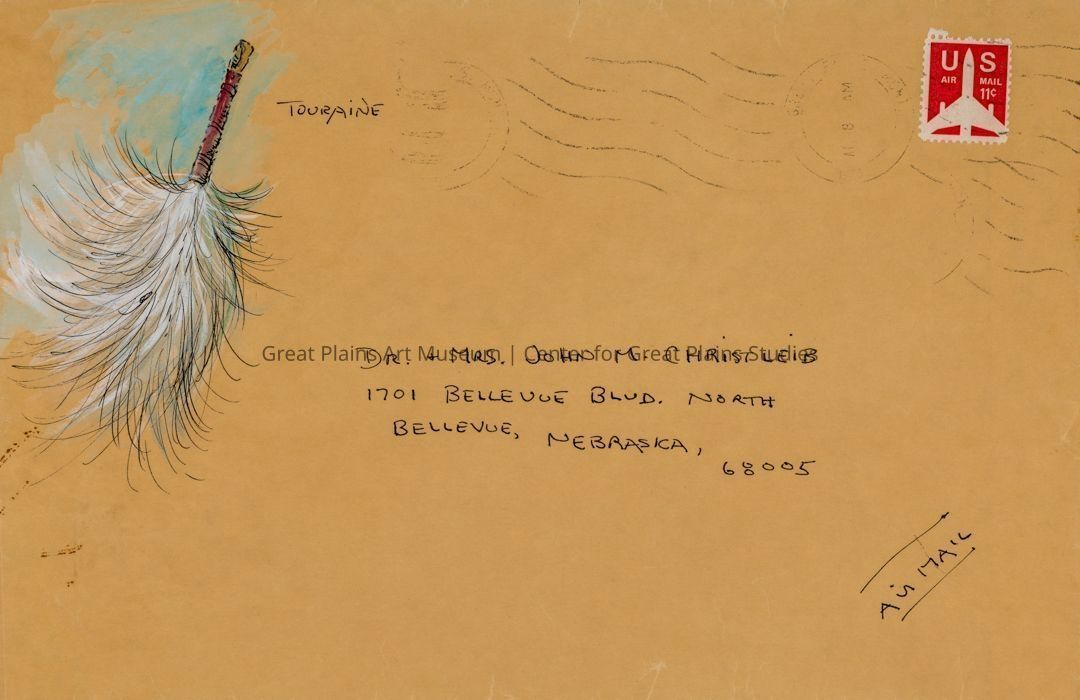 TOURAINE
US
AIR MAIL
11¢
AM
Great Plains Art Museum | Center for Great Plains Studies
DR. + MRS. JOHN M. CHRISTLEIB
1701 BELLEVUE BLVD. NORTH
BELLEVUE, NEBRASKA,
68005
AIR MAIL